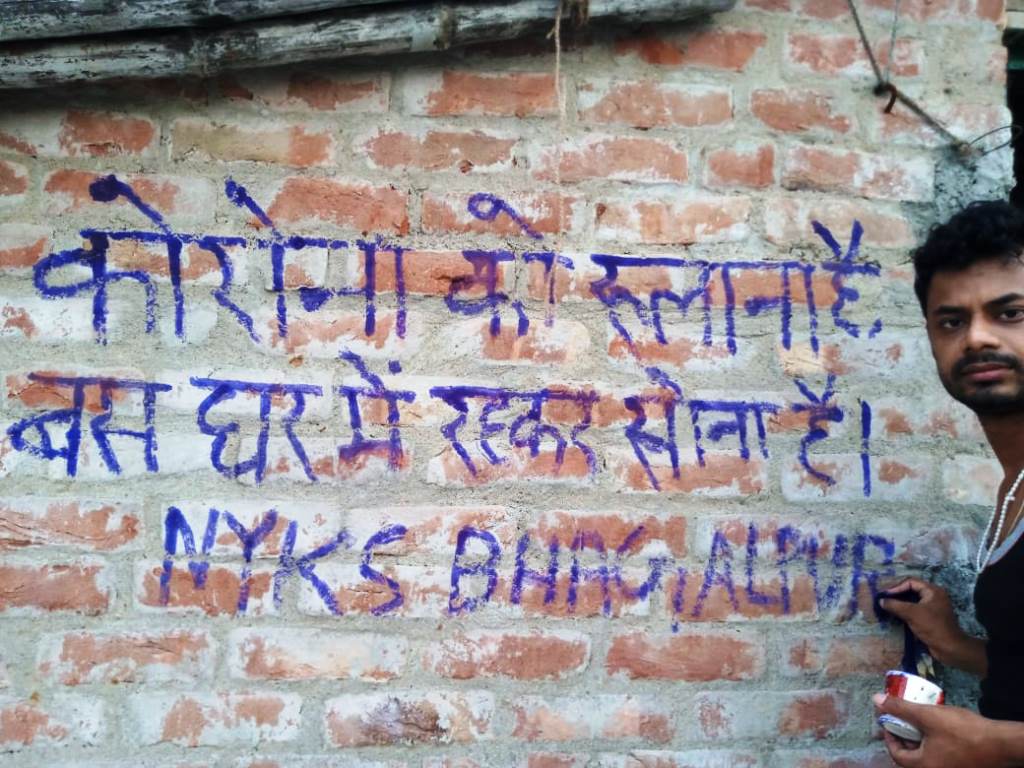 कोरोना को रूलाना है
बस घर में रहकर सोना है।
NYKS BHAGALPUR